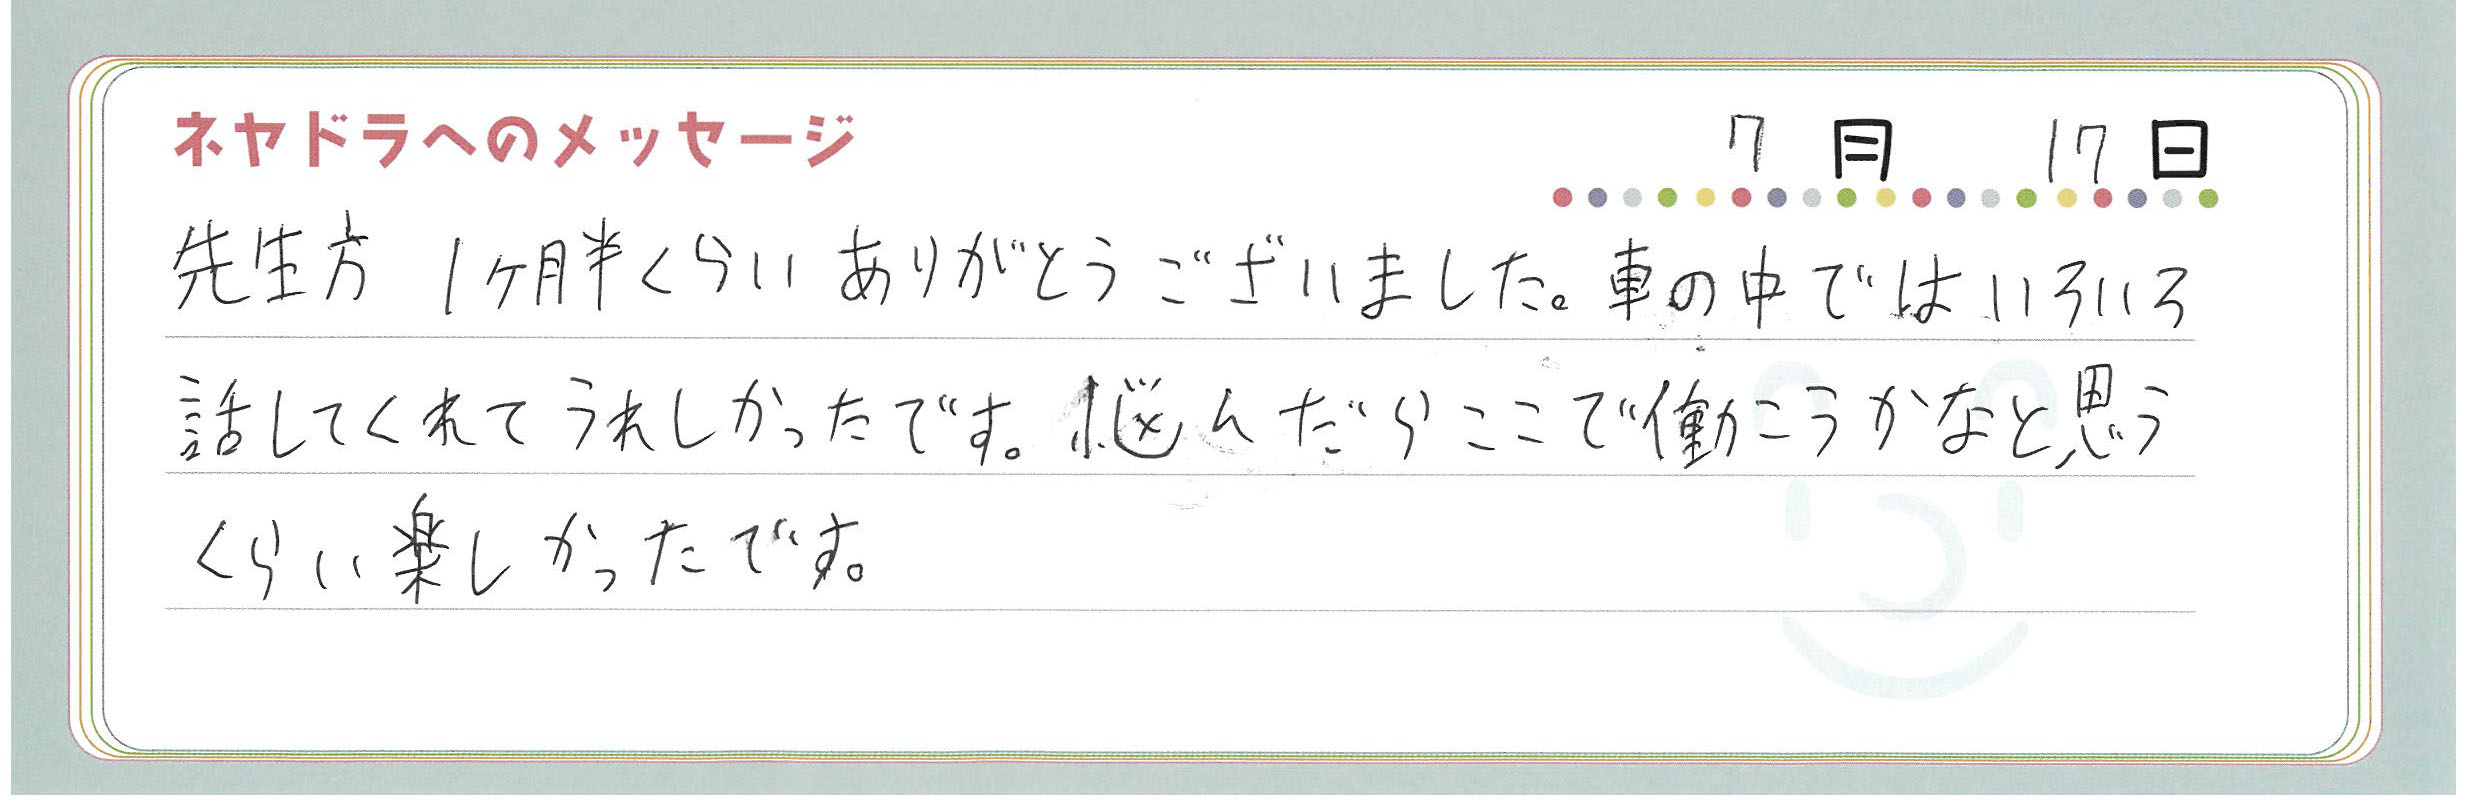 ネヤドラへのメッセージ 7月 17日
先生方 1ヶ月半くらい ありがとうございました。車の中ではいろいろ
話してくれてうれしかったです。悩んだらここで働こうかなと思う
くらい楽しかったです。